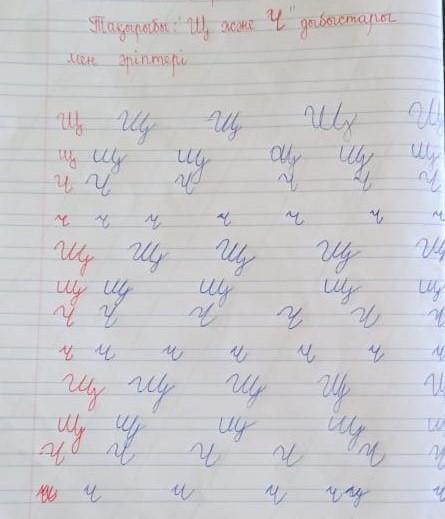 Тақырыбы: "Щ және Ч" дыбыстары
мен әріптері
Щ Щ Щ Щ Щ
щ щ щ щ щ щ
Ч Ч Ч Ч Ч Ч
ч ч ч ч ч ч ч
Щ Щ Щ Щ Щ
щ щ щ щ щ
Ч Ч Ч Ч Ч Ч
ч ч ч ч ч ч ч
Щ Щ Щ Щ Щ
щ щ щ щ щ
Ч Ч Ч Ч Ч Ч
ч ч ч ч ч ч